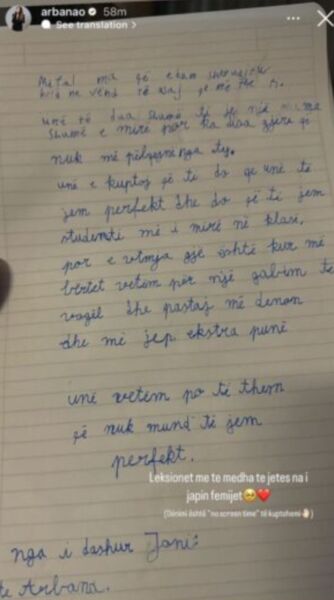 arbanao 58m
See translation >
kurë në vend të asaj që më the
unë të dua shumë ti je një
shumë e mirë por ka disa gjëra që
nuk më pëlqejnë nga ty.
unë e kuptoj që ti do që unë të
jem perfekt dhe do që të jem
studenti më i mirë në klasë,
por e vetmja gjë është kur më
bërtet vetëm për një gabim të
vogël dhe pastaj më dënon
dhe më jep ekstra punë
unë vetëm po të them
që nuk mund të jem
perfekt.
Leksionet me te medha te jetes na i
japin femijet🥹❤️
(Dënimi është "no screen time" të kuptohemi🤚🏻)
nga i dashur Joni
te Arbana.